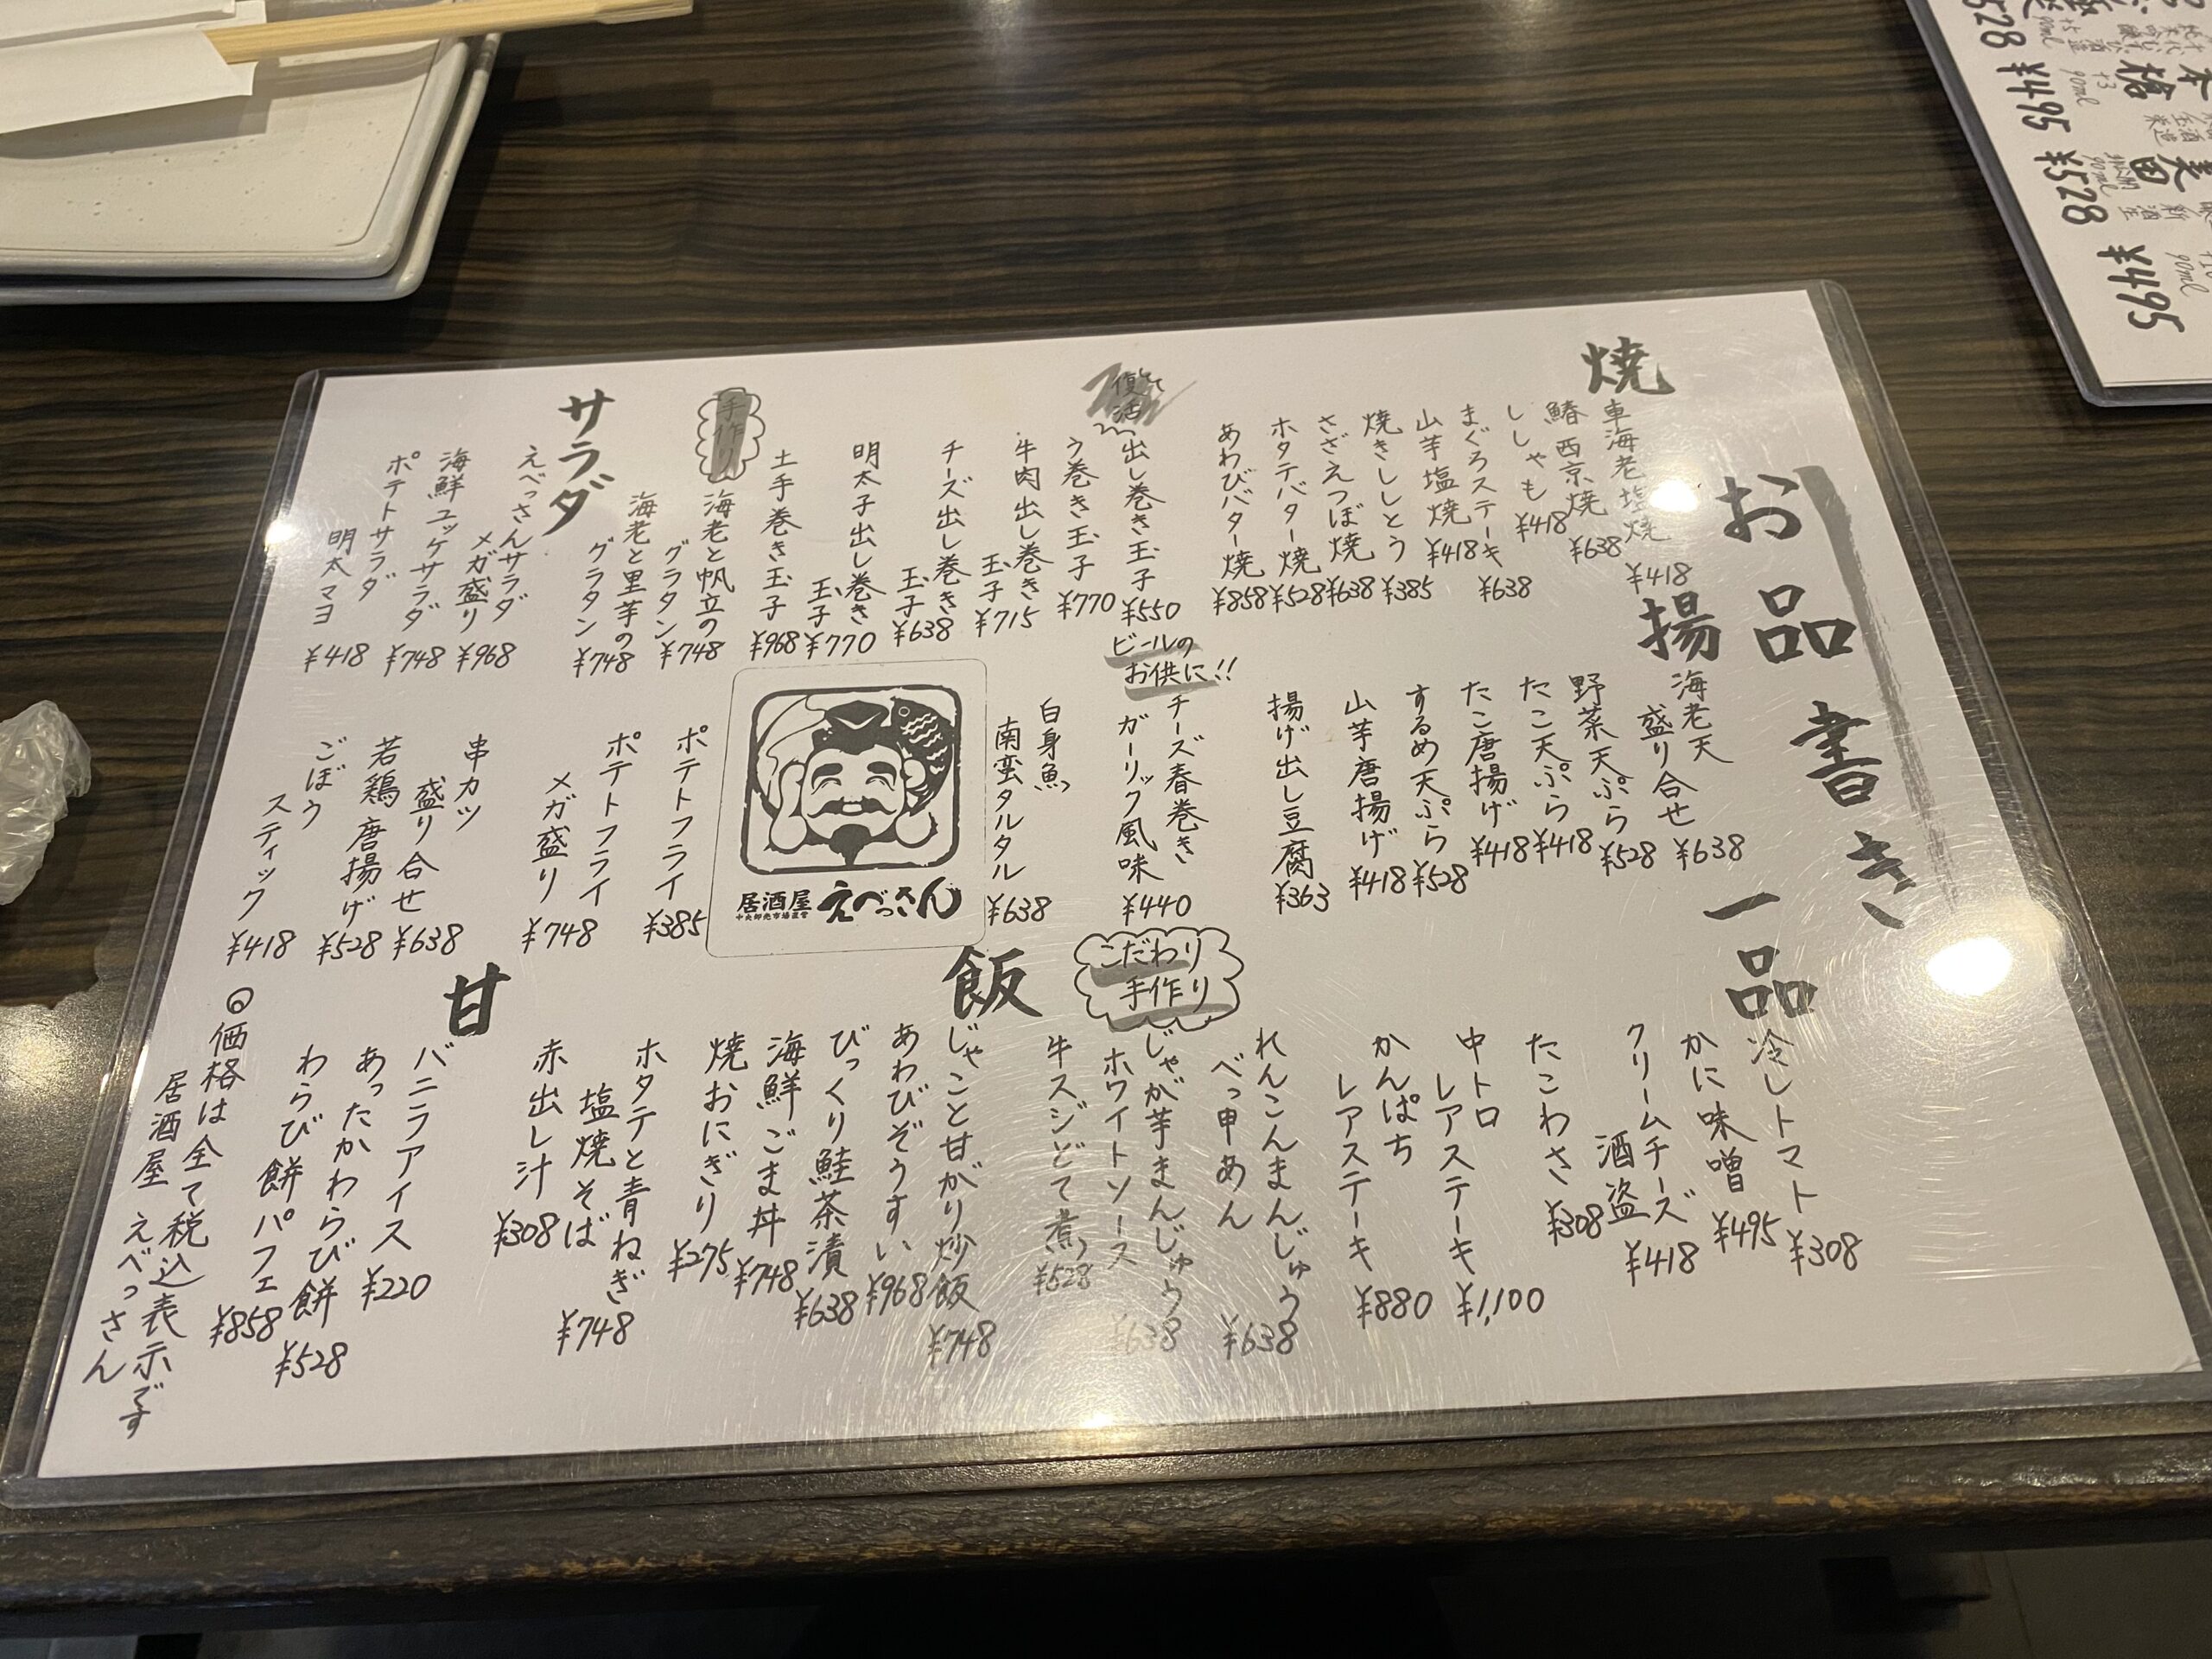 お品書き
焼
車海老塩焼 ¥418
鰆西京焼 ¥638
ししゃも ¥418
まぐろステーキ ¥638
山芋塩焼 ¥418
焼きししとう ¥385
さざえつぼ焼 ¥638
ホタテバター焼 ¥528
あわびバター焼 ¥858
復活
出し巻き玉子 ¥550
う巻き玉子 ¥770
牛肉出し巻き
玉子 ¥715
チーズ出し巻き
玉子 ¥638
明太子出し巻き
玉子 ¥770
土手巻き玉子 ¥968
手作り
海老と帆立の
グラタン ¥748
海老と里芋の
グラタン ¥748
サラダ
えべっさんサラダ
メガ盛り ¥968
海鮮ユッケサラダ ¥748
ポテトサラダ
明太マヨ ¥418
揚
海老天
盛り合せ ¥638
野菜天ぷら ¥528
たこ天ぷら ¥418
たこ唐揚げ ¥418
するめ天ぷら ¥528
山芋唐揚げ ¥418
揚げ出し豆腐 ¥363
ビールの
お供に!!
チーズ春巻き
ガーリック風味 ¥440
白身魚
南蛮タルタル ¥638
居酒屋 えべっさん
中央卸売市場直営
ポテトフライ ¥385
ポテトフライ
メガ盛り ¥748
串カツ
盛り合せ ¥638
若鶏唐揚げ ¥528
ごぼう
スティック ¥418
一品
冷しトマト ¥308
かに味噌 ¥495
クリームチーズ
酒盗 ¥418
たこわさ ¥308
中トロ
レアステーキ ¥1,100
かんぱち
レアステーキ ¥880
こだわり
手作り
れんこんまんじゅう
べっ甲あん ¥638
じゃが芋まんじゅう
ホワイトソース ¥638
牛スジどて煮 ¥528
飯
じゃこと甘がり炒飯 ¥748
あわびぞうすい ¥968
びっくり鮭茶漬 ¥638
海鮮ごま丼 ¥748
焼おにぎり ¥275
ホタテと青ねぎ
塩焼そば ¥748
赤出し汁 ¥308
甘
バニラアイス ¥220
あったかわらび餅 ¥528
わらび餅パフェ ¥858
◎価格は全て税込表示です
居酒屋 えべっさん
¥528
90ml
¥495
90ml
¥528
90ml
¥495
90ml